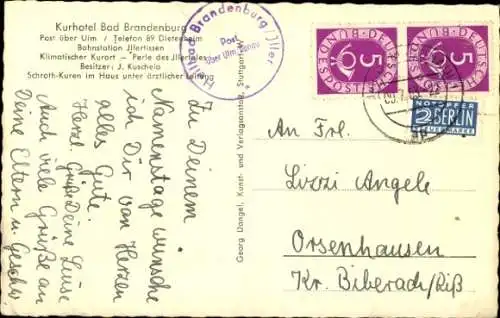 Kurhotel Bad Brandenburg
Post über Ulm / Telefon 89 Dietenheim
Bahnstation Jllertissen
Klimatischer Kurort - Perle des Jllertales
Besitzer: J. Kuschelo
Schroth-Kuren im Haus unter ärztlicher Leitung
Heilbad Brandenburg/Jller
Post
über Ulm/Donau
Zu Deinem
Namenstage wünsche
ich Dir von Herzen
alles Gute.
Herzl. Grüße Deine Luise
Auch viele Grüße an
Deine Eltern u. Geschw.
Georg Dangel, Kunst- und Verlagsanstalt, Stuttgart
DEUTSCHE BUNDESPOST
5
DEUTSCHE BUNDESPOST
5
NOTOPFER
2 BERLIN
STEUERMARKE
An Frl.
Lizzi Angele
Orsenhausen
Kr. Biberach/Riß